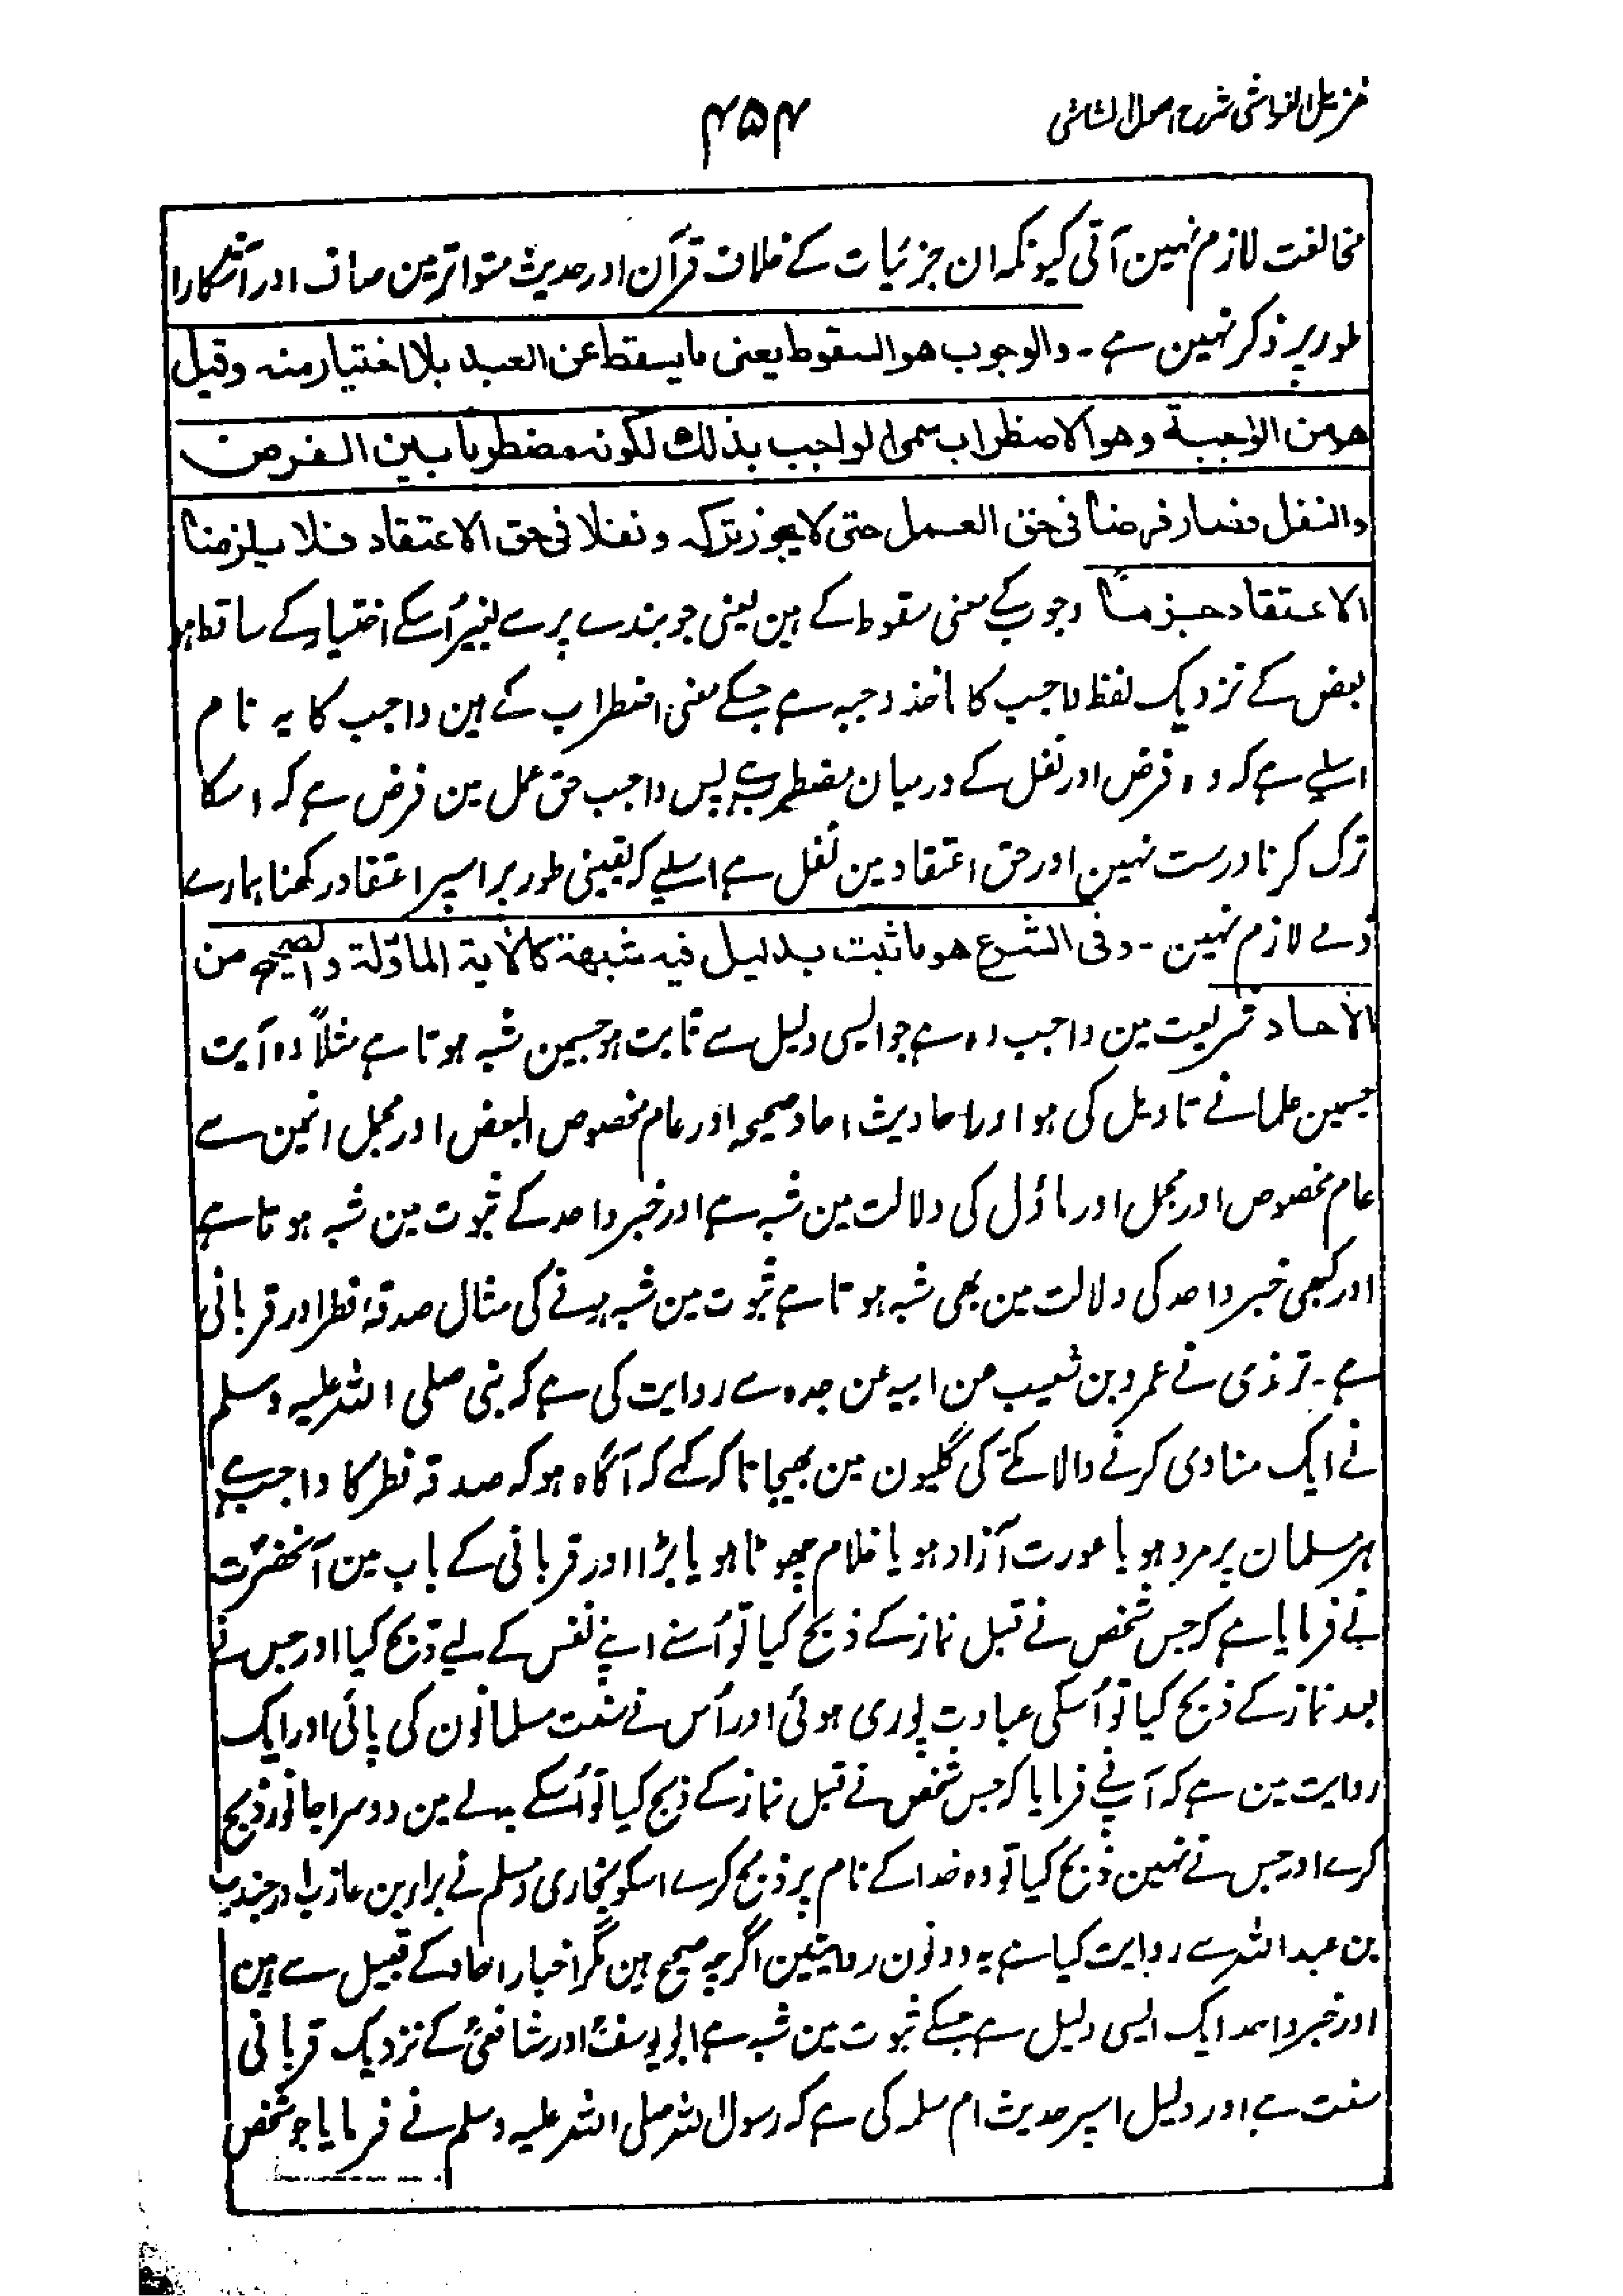 مزیل الغواشی شرح اصول الشاشی
۴۵۴
مخالفت لازم نہین آتی کیونکہ ان جزئیات کے خلاف قرآن اور حدیث متواتر مین صاف اور آشکارا
طور پر ذکر نہین ہے۔ والوجوب هو السقوط يعنى ما يسقط عن العبد بلا اختيار منه وقيل
هو من الوجبة وهو الاضطراب سمى الواجب بذلك لكونه مضطربا بين الفرض
والنفل فصار فرضا فى حق العمل حتى لا يجوز تركه ونفلا فى حق الاعتقاد فلا يلزمنا
الاعتقاد جزما وجوب کے معنی سقوط کے ہین یعنی جو بندے پر سے بغیر اُسکے اختیار کے ساقط ہو
بعض کے نزدیک لفظ واجب کا ماخذ وجبہ ہے جسکے معنی اضطراب کے ہین واجب کا یہ نام
اسلیے ہے کہ وہ فرض اور نفل کے درمیان مضطرب ہے پس واجب حق عمل مین فرض ہے کہ اسکا
ترک کرنا درست نہین اور حق اعتقاد مین نفل ہے اسلیے کہ یقینی طور پر اسپر اعتقاد رکھنا ہمارے
ذمے لازم نہین۔ وفى الشرع هو ما ثبت بدليل فيه شبهة كالآية المأوّلة والصحيح من
الآحاد شریعت مین واجب وہ ہے جو ایسی دلیل سے ثابت ہو جسمین شبہ ہوتا ہے مثلاً وہ آیت
جسمین علما نے تاویل کی ہو اور احادیث احاد صحیحہ اور عام مخصوص البعض اور مجمل انمین سے
عام مخصوص اور مجمل اور ماؤل کی دلالت مین شبہ ہے اور خبر واحد کے ثبوت مین شبہ ہوتا ہے
اور کبھی خبر واحد کی دلالت مین بھی شبہ ہوتا ہے ثبوت مین شبہ ہونے کی مثال صدقۂ فطر اور قربانی
ہے۔ ترمذی نے عمرو بن شعیب عن ابیہ عن جدہ سے روایت کی ہے کہ نبی صلی اللہ علیہ وسلم
نے ایک منادی کرنے والا مکے کی گلیون مین بھیجا تا کہ کہے کہ آگاہ ہو کہ صدقہ فطر کا واجب ہے
ہر مسلمان پر مرد ہو یا عورت آزاد ہو یا غلام چھوٹا ہو یا بڑا اور قربانی کے باب مین آنحضرت
نے فرمایا ہے کہ جس شخص نے قبل نماز کے ذبح کیا تو اُسنے اپنے نفس کے لیے ذبح کیا اور جس نے
بعد نماز کے ذبح کیا تو اُسکی عبادت پوری ہوئی اور اُس نے سنت مسلمانون کی پائی اور ایک
روایت مین ہے کہ آپنے فرمایا کہ جس شخص نے قبل نماز کے ذبح کیا تو اُسکے بدلے مین دوسرا جانور ذبح
کرے اور جس نے نہین ذبح کیا تو وہ خدا کے نام پر ذبح کرے اسکو بخاری و مسلم نے براء بن عازب اور جندب
بن عبداللہ سے روایت کیا ہے یہ دونون روایتین اگرچہ صحیح ہین مگر اخبار احاد کے قبیل سے ہین
اور خبر واحد ایک ایسی دلیل ہے جسکے ثبوت مین شبہ ہے ابو یوسفؒ اور شافعیؒ کے نزدیک قربانی
سنت ہے اور دلیل اسپر حدیث ام سلمہ کی ہے کہ رسول اللہ صلی اللہ علیہ وسلم نے فرمایا جو شخص